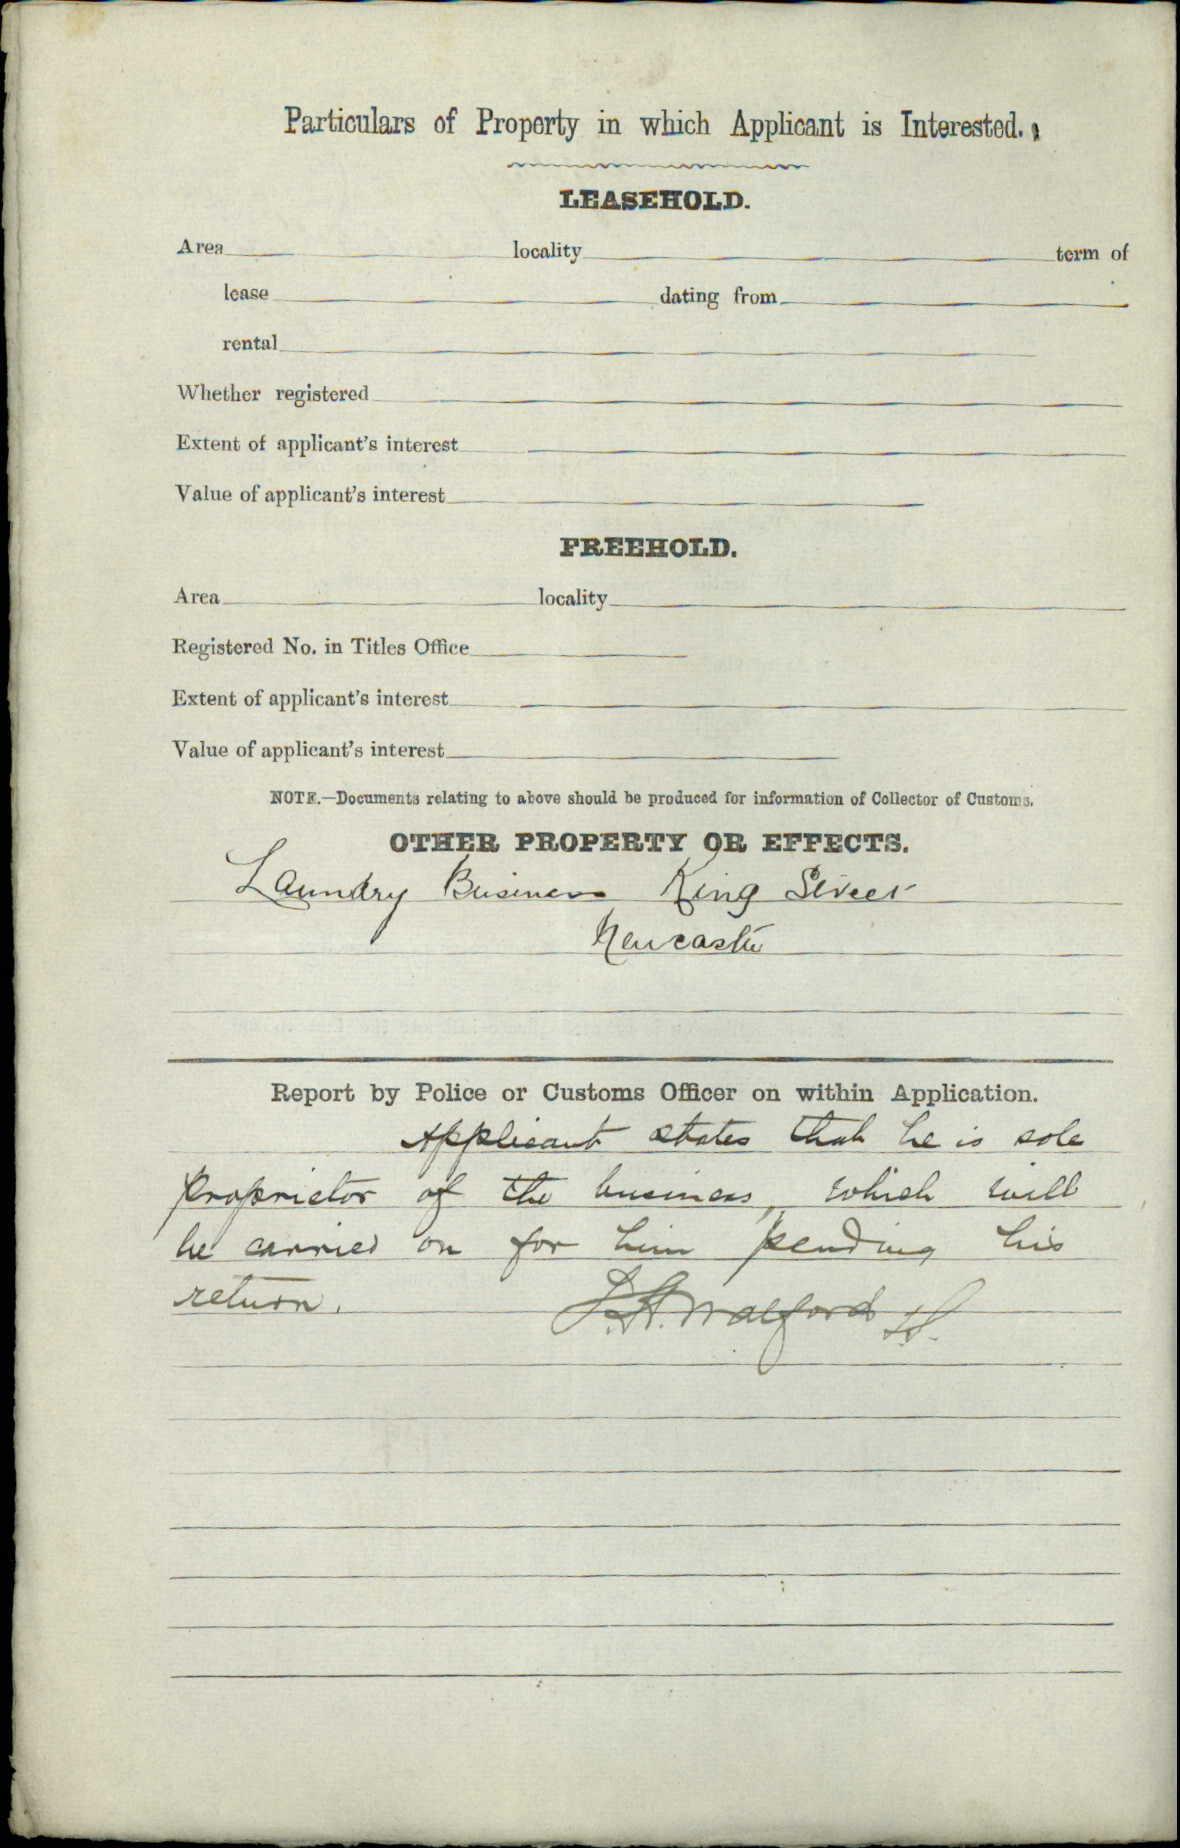 Particulars of Property in which Applicant is Interested.
LEASEHOLD.
Area locality term of
lease dating from
rental
Whether registered
Extent of applicant's interest
Value of applicant's interest
FREEHOLD.
Area locality
Registered No. in Titles Office
Extent of applicant's interest
Value of applicant's interest
NOTE.—Documents relating to above should be produced for information of Collector of Customs.
OTHER PROPERTY OR EFFECTS.
Laundry Business King Street
Newcastle
Report by Police or Customs Officer on within Application.
Applicant states that he is sole
proprietor of the business, which will
be carried on for him pending his
return.
Walford